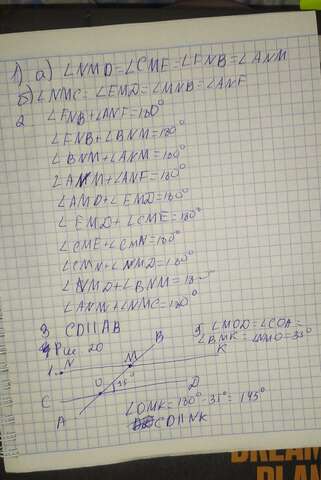 1) а) ∠NMD=∠CME=∠FNB=∠ANM
б) ∠NMC=∠EMD=∠MNB=∠ANF
2 ∠FNB+∠ANF=180°
∠FNB+∠BNM=180°
∠BNM+∠ANM=180°
∠ANM+∠ANF=180°
∠AMD+∠EMD=180°
∠EMD+∠CME=180°
∠CME+∠CMN=180°
∠CMN+∠NMD=180°
∠NMD+∠BNM=180°
∠ANM+∠NMC=180°
3 CD||AB
Рис 20
B
∠MOD=∠COA=
∠BMK=∠NMO=35°
1. N
M
K
O
35°
C
D
A
∠OMK=180°-35°=145°
CD||NK
DREAM
PLAN